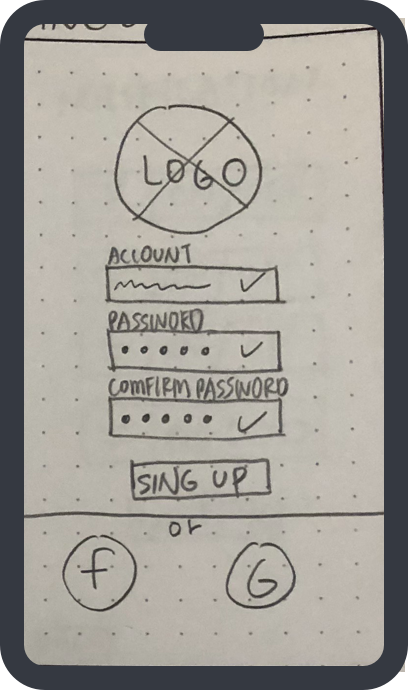 LOGO
ACCOUNT
PASSWORD
COMFIRM PASSWORD
SING UP
or
f
G